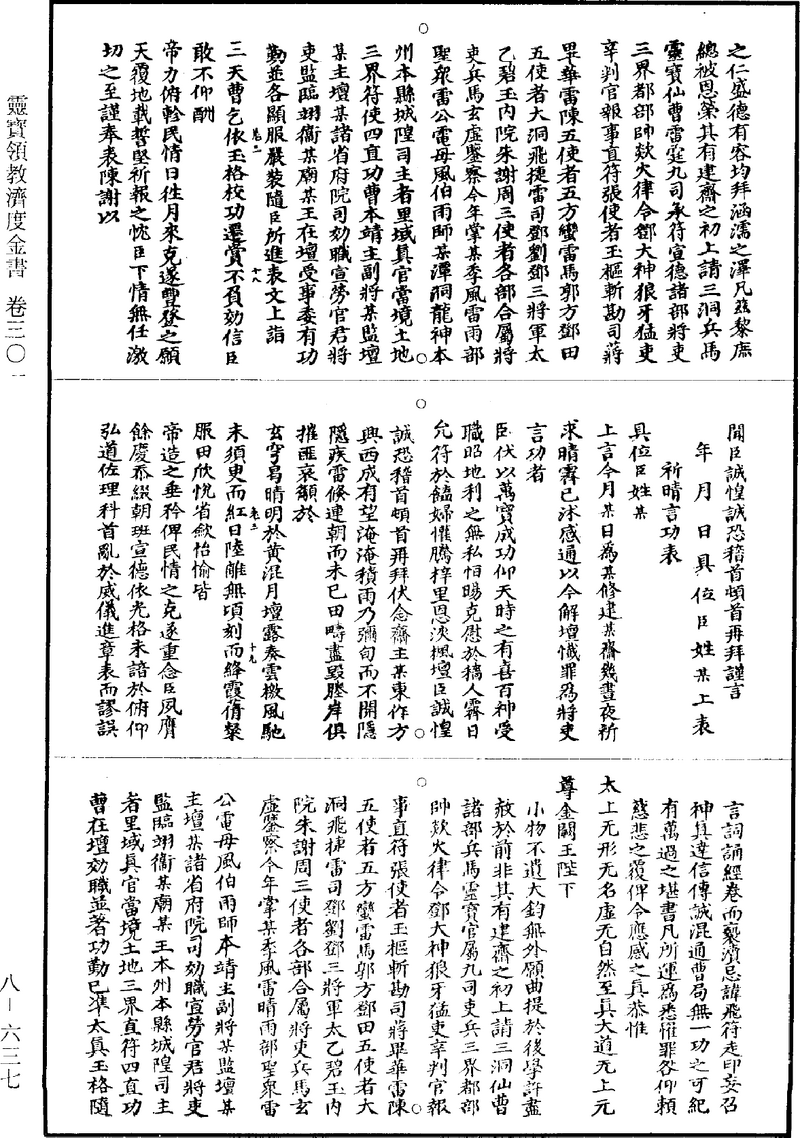 靈寶領教濟度金書 卷三〇一
八－六三七
之仁盛德有容均拜涵濡之澤凡兹黎庶
總被恩榮其有建齋之初上請三洞兵馬
靈寶仙曹雷霆九司承符宣德諸部將吏
三界都部帥歘火律令鄧大神狼牙猛吏
辛判官報事直符張使者玉樞斬勘司蔣
畢華雷陳五使者五方蠻雷馬郭方鄧田
五使者大洞飛捷雷司鄧劉鄧三將軍太
乙碧玉內院朱謝周三使者各部合屬將
吏兵馬玄虛鑒察今年掌某季風雷雨部
聖衆雷公電母風伯雨師某潭洞龍神本
州本縣城隍司主者里域真官當境土地
三界符使四直功曹本靖主副將某監壇
某主壇某諸省府院司効職宣勞官君將
吏監臨翊衛某廟某王在壇受事委有功
勤並各顯服嚴裝隨臣所進表文上詣
卷二
十八
三天曹乞依玉格校功遷賞不負効信臣
敢不仰酬
帝力俯軫民情日往月來克遂豐登之願
天覆地載誓堅祈報之忱臣下情無任激
切之至謹奉表陳謝以
聞臣誠惶誠恐稽首頓首再拜謹言
年月日具位臣姓某上表
祈晴言功表
具位臣姓某
上言今月某日為某修建某齋幾晝夜祈
求晴霽已沐感通以今解壇懺罪為將吏
言功者
臣伏以萬寶成功仰天時之有喜百神受
職昭地利之無私怕暘克慰於穡人霽日
允符於饁婦懽騰梓里恩浹楓壇臣誠惶
誠恐稽首頓首再拜伏念齋主某東作方
興西成有望淹淹積雨乃彌旬而不開隱
隱疾雷倏連朝而未已田疇盡毀塍岸俱
摧匪哀籲於
玄穹曷晴明於黃混月壇露奏雲檄風馳
卷二
十九
未須臾而紅日陸離無頃刻而絳霞蒨粲
服田欣悅省斂怡愉皆
帝造之垂矜俾民情之克遂重念臣夙膺
餘慶忝綴朝班宣德依光格未諳於俯仰
弘道佐理科首亂於威儀進章表而謬誤
言詞誦經卷而褻瀆忌諱飛符走印妄召
神真達信傳誠混通曹局無一功之可紀
有萬過之堪書凡所運為悉懼罪咎仰賴
慈悲之覆俾令應感之真恭惟
太上无形无名虛无自然至真大道无上元
尊金闕玉陛下
小物不遺大鈞無外願曲提於後學許盡
赦於前非其有建齋之初上請三洞仙曹
諸部兵馬靈寶官屬九司吏兵三界都部
帥歘火律令鄧大神狼牙猛吏辛判官報
事直符張使者玉樞斬勘司蔣畢華雷陳
五使者五方蠻雷馬郭方鄧田五使者大
洞飛捷雷司鄧劉鄧三將軍太乙碧玉內
院朱謝周三使者各部合屬將吏兵馬玄
虛鑒察今年掌某季風雷晴雨部聖衆雷
公電母風伯雨師本靖主副將某監壇某
主壇某諸省府院司効職宣勞官君將吏
監臨翊衛某廟某王本州本縣城隍司主
者里域真官當境土地三界直符四直功
曹在壇効職並著功勤已準太真玉格隨